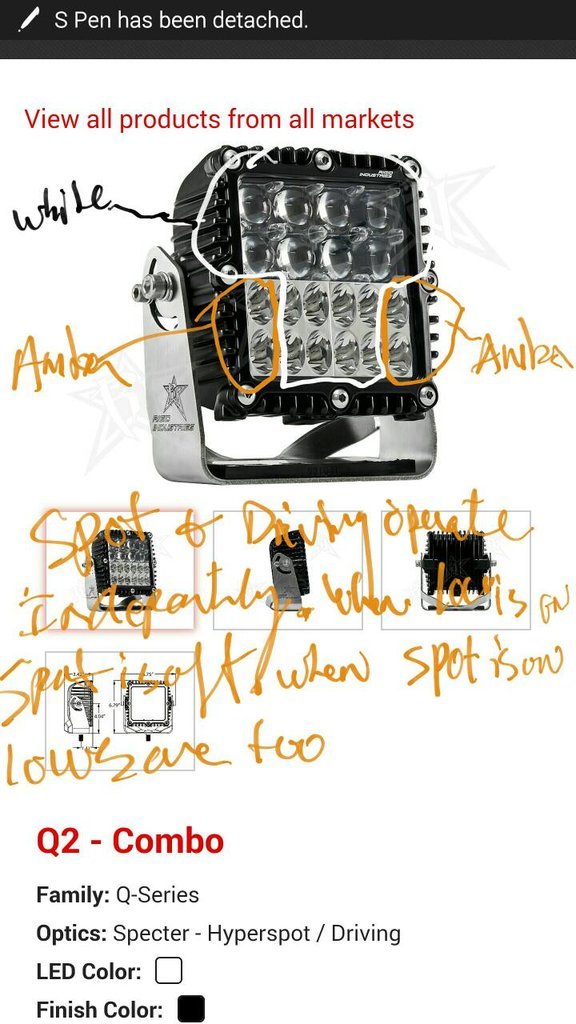 S Pen has been detached.
View all products from all markets
RIGID
INDUSTRIES
white
RIGID
INDUSTRIES
Spot & Driving operate
when low is on
Spot is off. when spot is on
lows are too
Q2 - Combo
Family: Q-Series
Optics: Specter - Hyperspot / Driving
LED Color:
Finish Color: